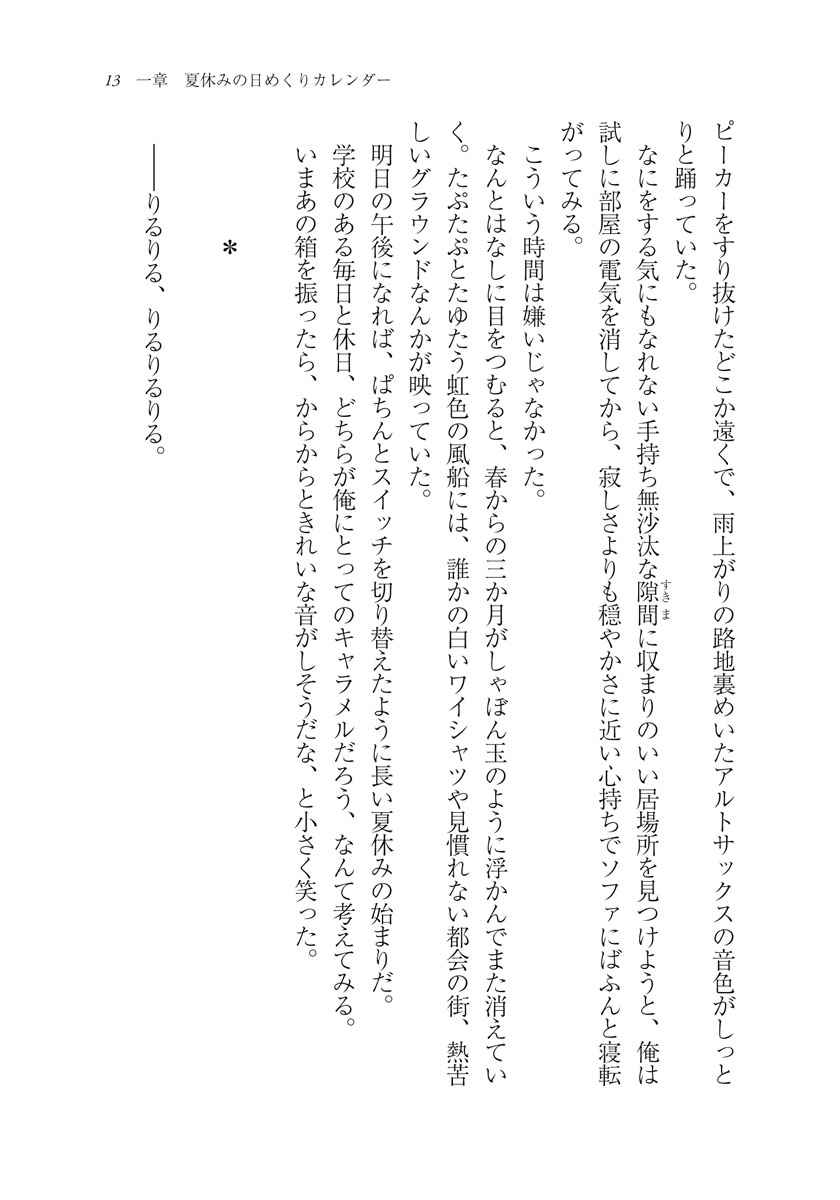 13 一章　夏休みの日めくりカレンダー
ピーカーをすり抜けたどこか遠くで、雨上がりの路地裏めいたアルトサックスの音色がしっと
りと踊っていた。
　なにをする気にもなれない手持ち無沙汰な隙間に収まりのいい居場所を見つけようと、俺は
すきま
試しに部屋の電気を消してから、寂しさよりも穏やかさに近い心持ちでソファにばふんと寝転
がってみる。
　こういう時間は嫌いじゃなかった。
　なんとはなしに目をつむると、春からの三か月がしゃぼん玉のように浮かんでまた消えてい
く。たぷたぷとたゆたう虹色の風船には、誰かの白いワイシャツや見慣れない都会の街、熱苦
しいグラウンドなんかが映っていた。
　明日の午後になれば、ぱちんとスイッチを切り替えたように長い夏休みの始まりだ。
　学校のある毎日と休日、どちらが俺にとってのキャラメルだろう、なんて考えてみる。
　いまあの箱を振ったら、からからときれいな音がしそうだな、と小さく笑った。
＊
　――りるりる、りるりるりる。